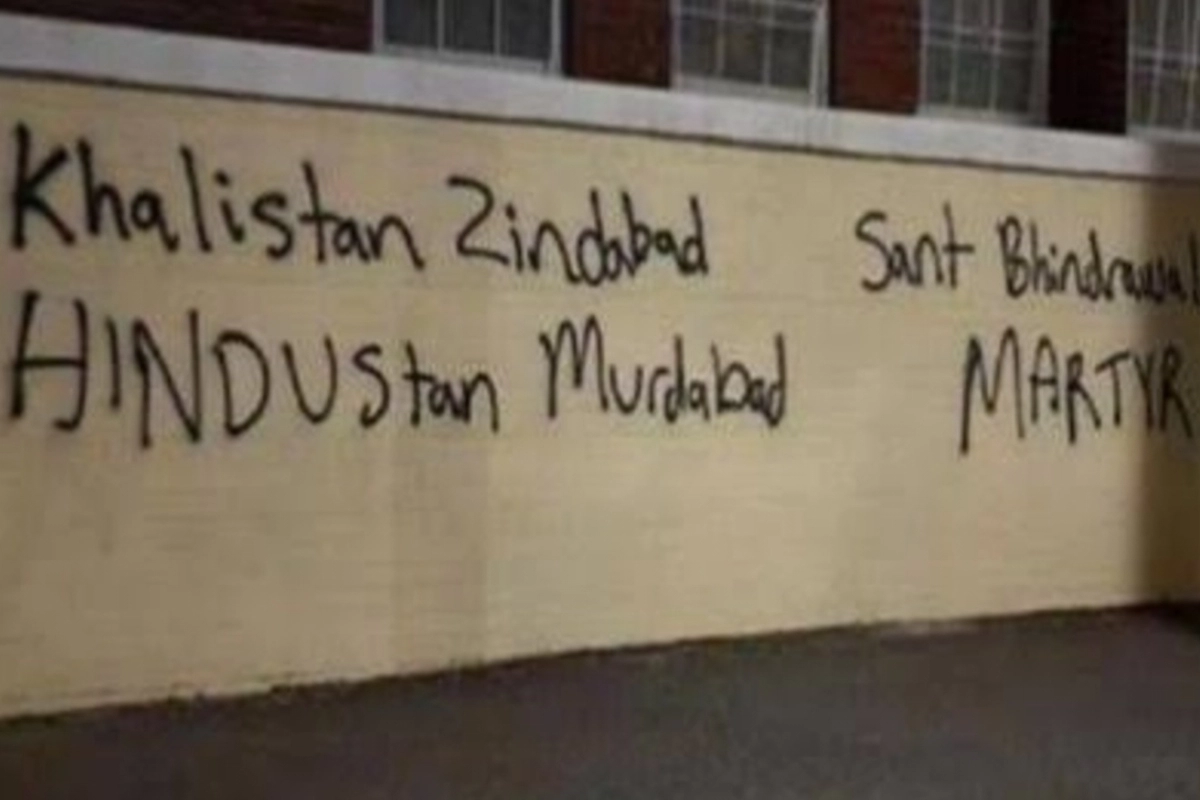 Khalistan Zindabad
HINDUStan Murdabad
Sant
MARTYR